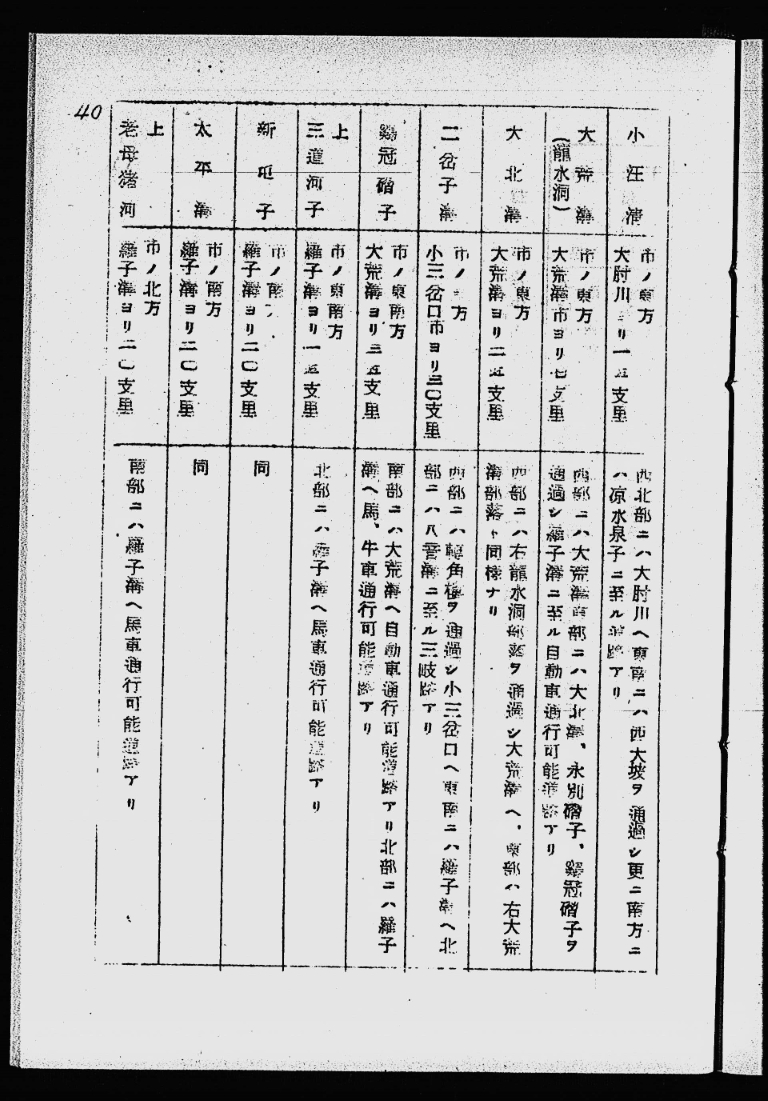 40
小汪清
市ノ東方
大肘川ヨリ一五支里
西北部ニハ大肘川ヘ東南ニハ西大坡ヲ通過シ更ニ南方ニ
ハ凉水泉子ニ至ル道路アリ
大荒溝
(龍水洞)
市ノ東方
大荒溝市ヨリ七支里
西部ニハ大荒溝東部ニハ大北溝、永別磖子、鷄冠磖子ヲ
通過シ羅子溝ニ至ル自動車通行可能道路アリ
大北溝
市ノ東方
大荒溝ヨリ二五支里
西部ニハ右龍水洞部落ヲ通過シ大荒溝ヘ、東部ハ右大荒
溝部落ト同樣ナリ
二岔子溝
市ノ 方
小三岔口市ヨリ三〇支里
西部ニハ轉角樓ヲ通過シ小三岔口ヘ東南ニハ羅子溝ヘ北
部ニハ八 溝ニ至ル三岐路アリ
鷄冠磖子
市ノ東南方
大荒溝ヨリ三五支里
南部ニハ大荒溝ヘ自動車通行可能道路アリ北部ニハ羅子
溝ヘ馬、牛車通行可能道路アリ
上
三道河子
市ノ東南方
羅子溝ヨリ一五支里
北部ニハ羅子溝ヘ馬車通行可能道路アリ
新屯子
市ノ南方
羅子溝ヨリ二〇支里
同
太平溝
市ノ南方
羅子溝ヨリ二〇支里
同
上
老母猪河
市ノ北方
羅子溝ヨリ二〇支里
南部ニハ羅子溝ヘ馬車通行可能道路アリ